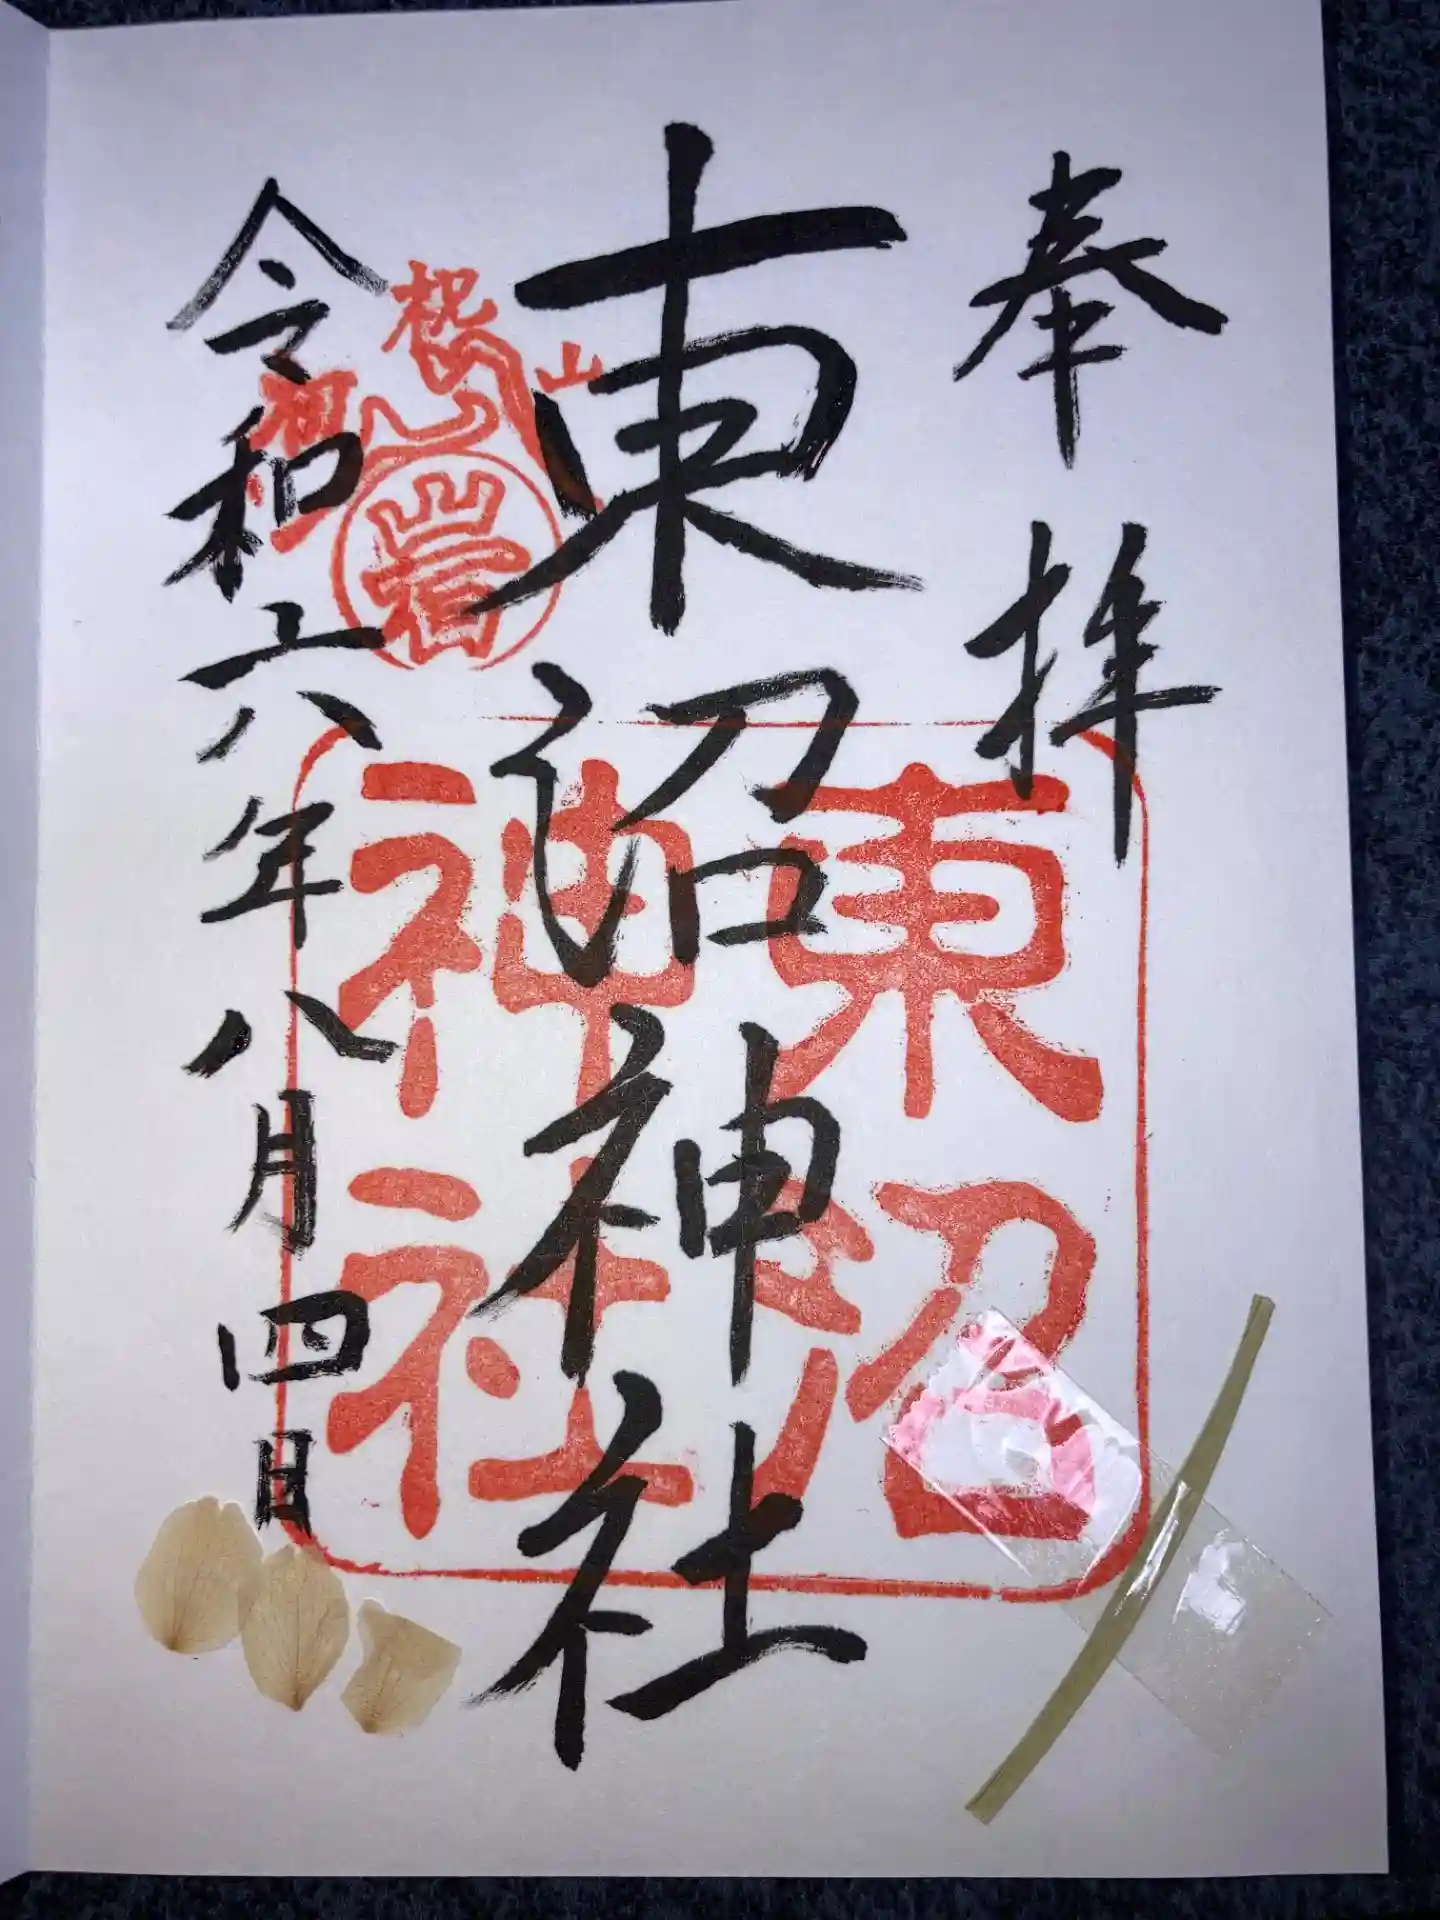 奉拝
東沼神社
令和六年八月四日
岩
東沼
神社